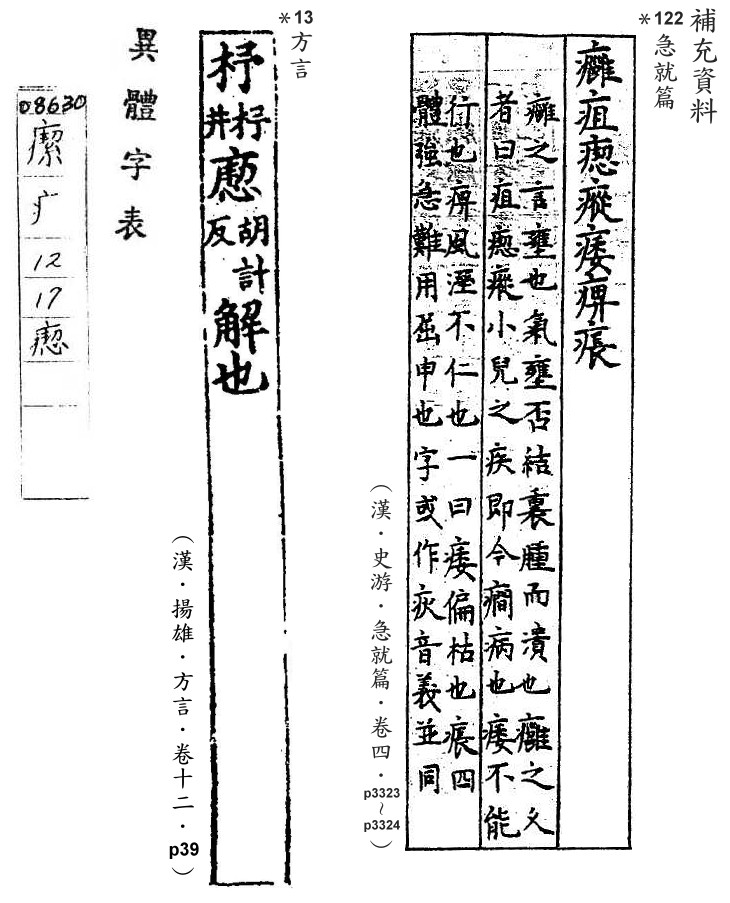 補充資料
*122
急就篇
癰疽瘛瘲痿痹痮
癰之言壅也氣壅否結裹腫而潰也癰之久
者曰疽瘛瘲小兒之疾即今癎病也痿不能
行也痹風溼不仁也一曰痿偏枯也痮四
體強急難用屈申也字或作音義並同
（漢．史游．急就篇．卷四．p3323～p3324）
*13
方言
抒抒井瘛胡計反解也
（漢．揚雄．方言．卷十二．p39）
異體字表
08630
疒
12
17
瘛